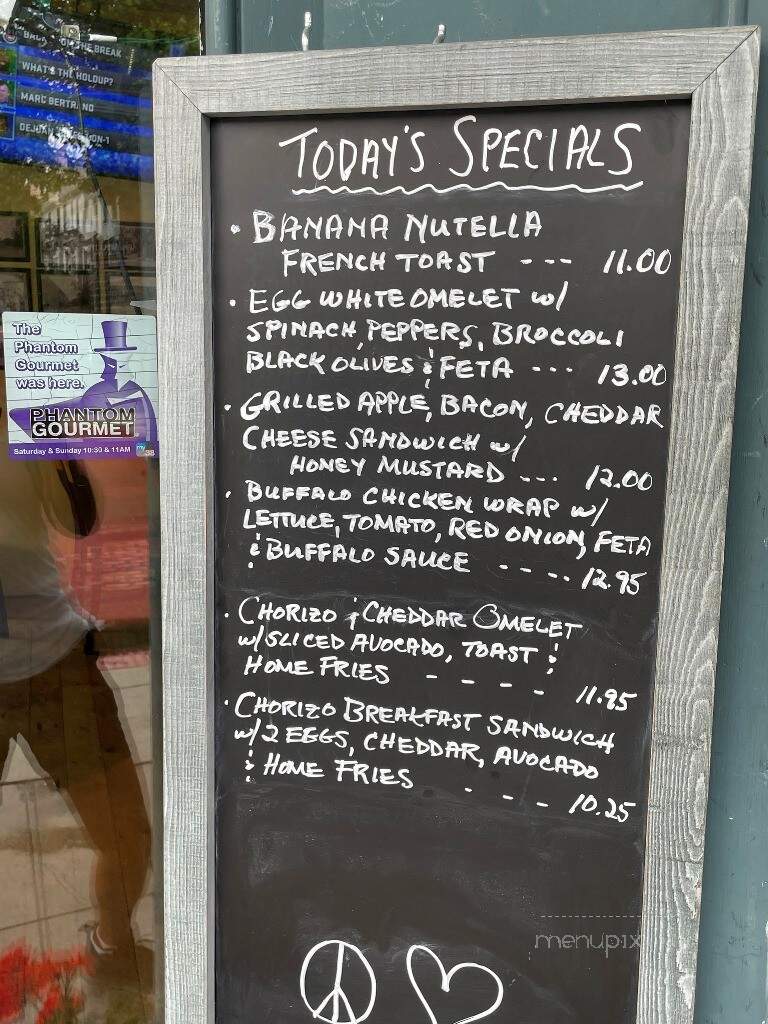 ON THE BREAK
WHAT'S THE HOLDUP?
MARC
TODAY'S SPECIALS
• BANANA NUTELLA
FRENCH TOAST --- 11.00
• EGG WHITE OMELET w/
SPINACH, PEPPERS, BROCCOLI
BLACK OLIVES & FETA --- 13.00
• GRILLED APPLE, BACON, CHEDDAR
CHEESE SANDWICH w/
HONEY MUSTARD --- 12.00
• BUFFALO CHICKEN WRAP w/
LETTUCE, TOMATO, RED ONION, FETA
& BUFFALO SAUCE ---- 12.95
• CHORIZO & CHEDDAR OMELET
w/ SLICED AVOCADO, TOAST &
HOME FRIES ---- 11.95
• CHORIZO BREAKFAST SANDWICH
w/ 2 EGGS, CHEDDAR, AVOCADO
& HOME FRIES --- 10.25
The
Phantom
Gourmet
was here.
PHANTOM
GOURMET
Saturday & Sunday 10:30 & 11AM
my
38
menupix